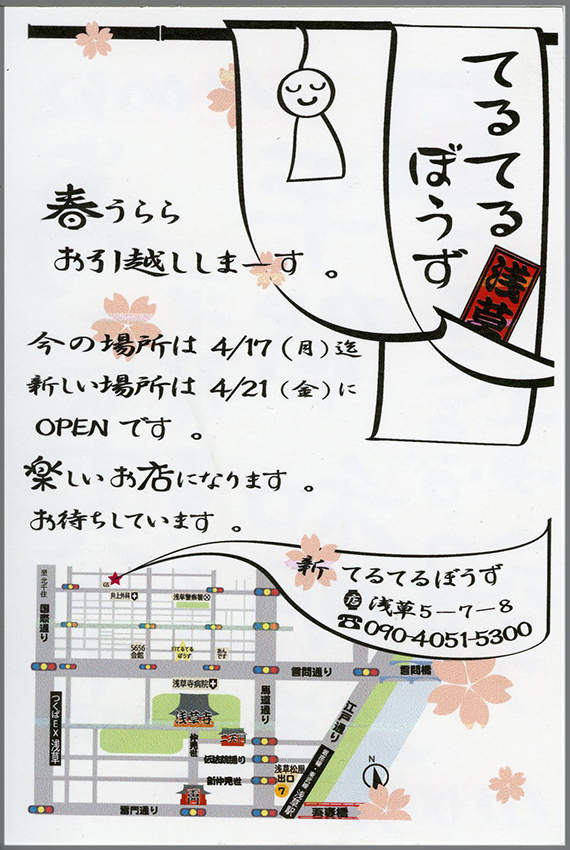 てるてる
ぼうず
浅草
春うらら
お引越ししまーす。
今の場所は 4/17(月)迄
新しい場所は 4/21(金)に
OPEN です。
楽しいお店になります。
お待ちしています。
新 てるてるぼうず
店 浅草5-7-8
☎090-4051-5300
至 北千住
国際通り
GS
井上外科
浅草警察署
5656
会館
旧てるてる
ぼうず
あん
です
言問通り
言問橋
浅草寺病院
馬道通り
江戸通り
つくばEX浅草
浅草寺
仲見世
二天門
伝法院通り
新仲見世
浅草松屋
出口
7
浅草駅
N
雷門通り
吾妻橋